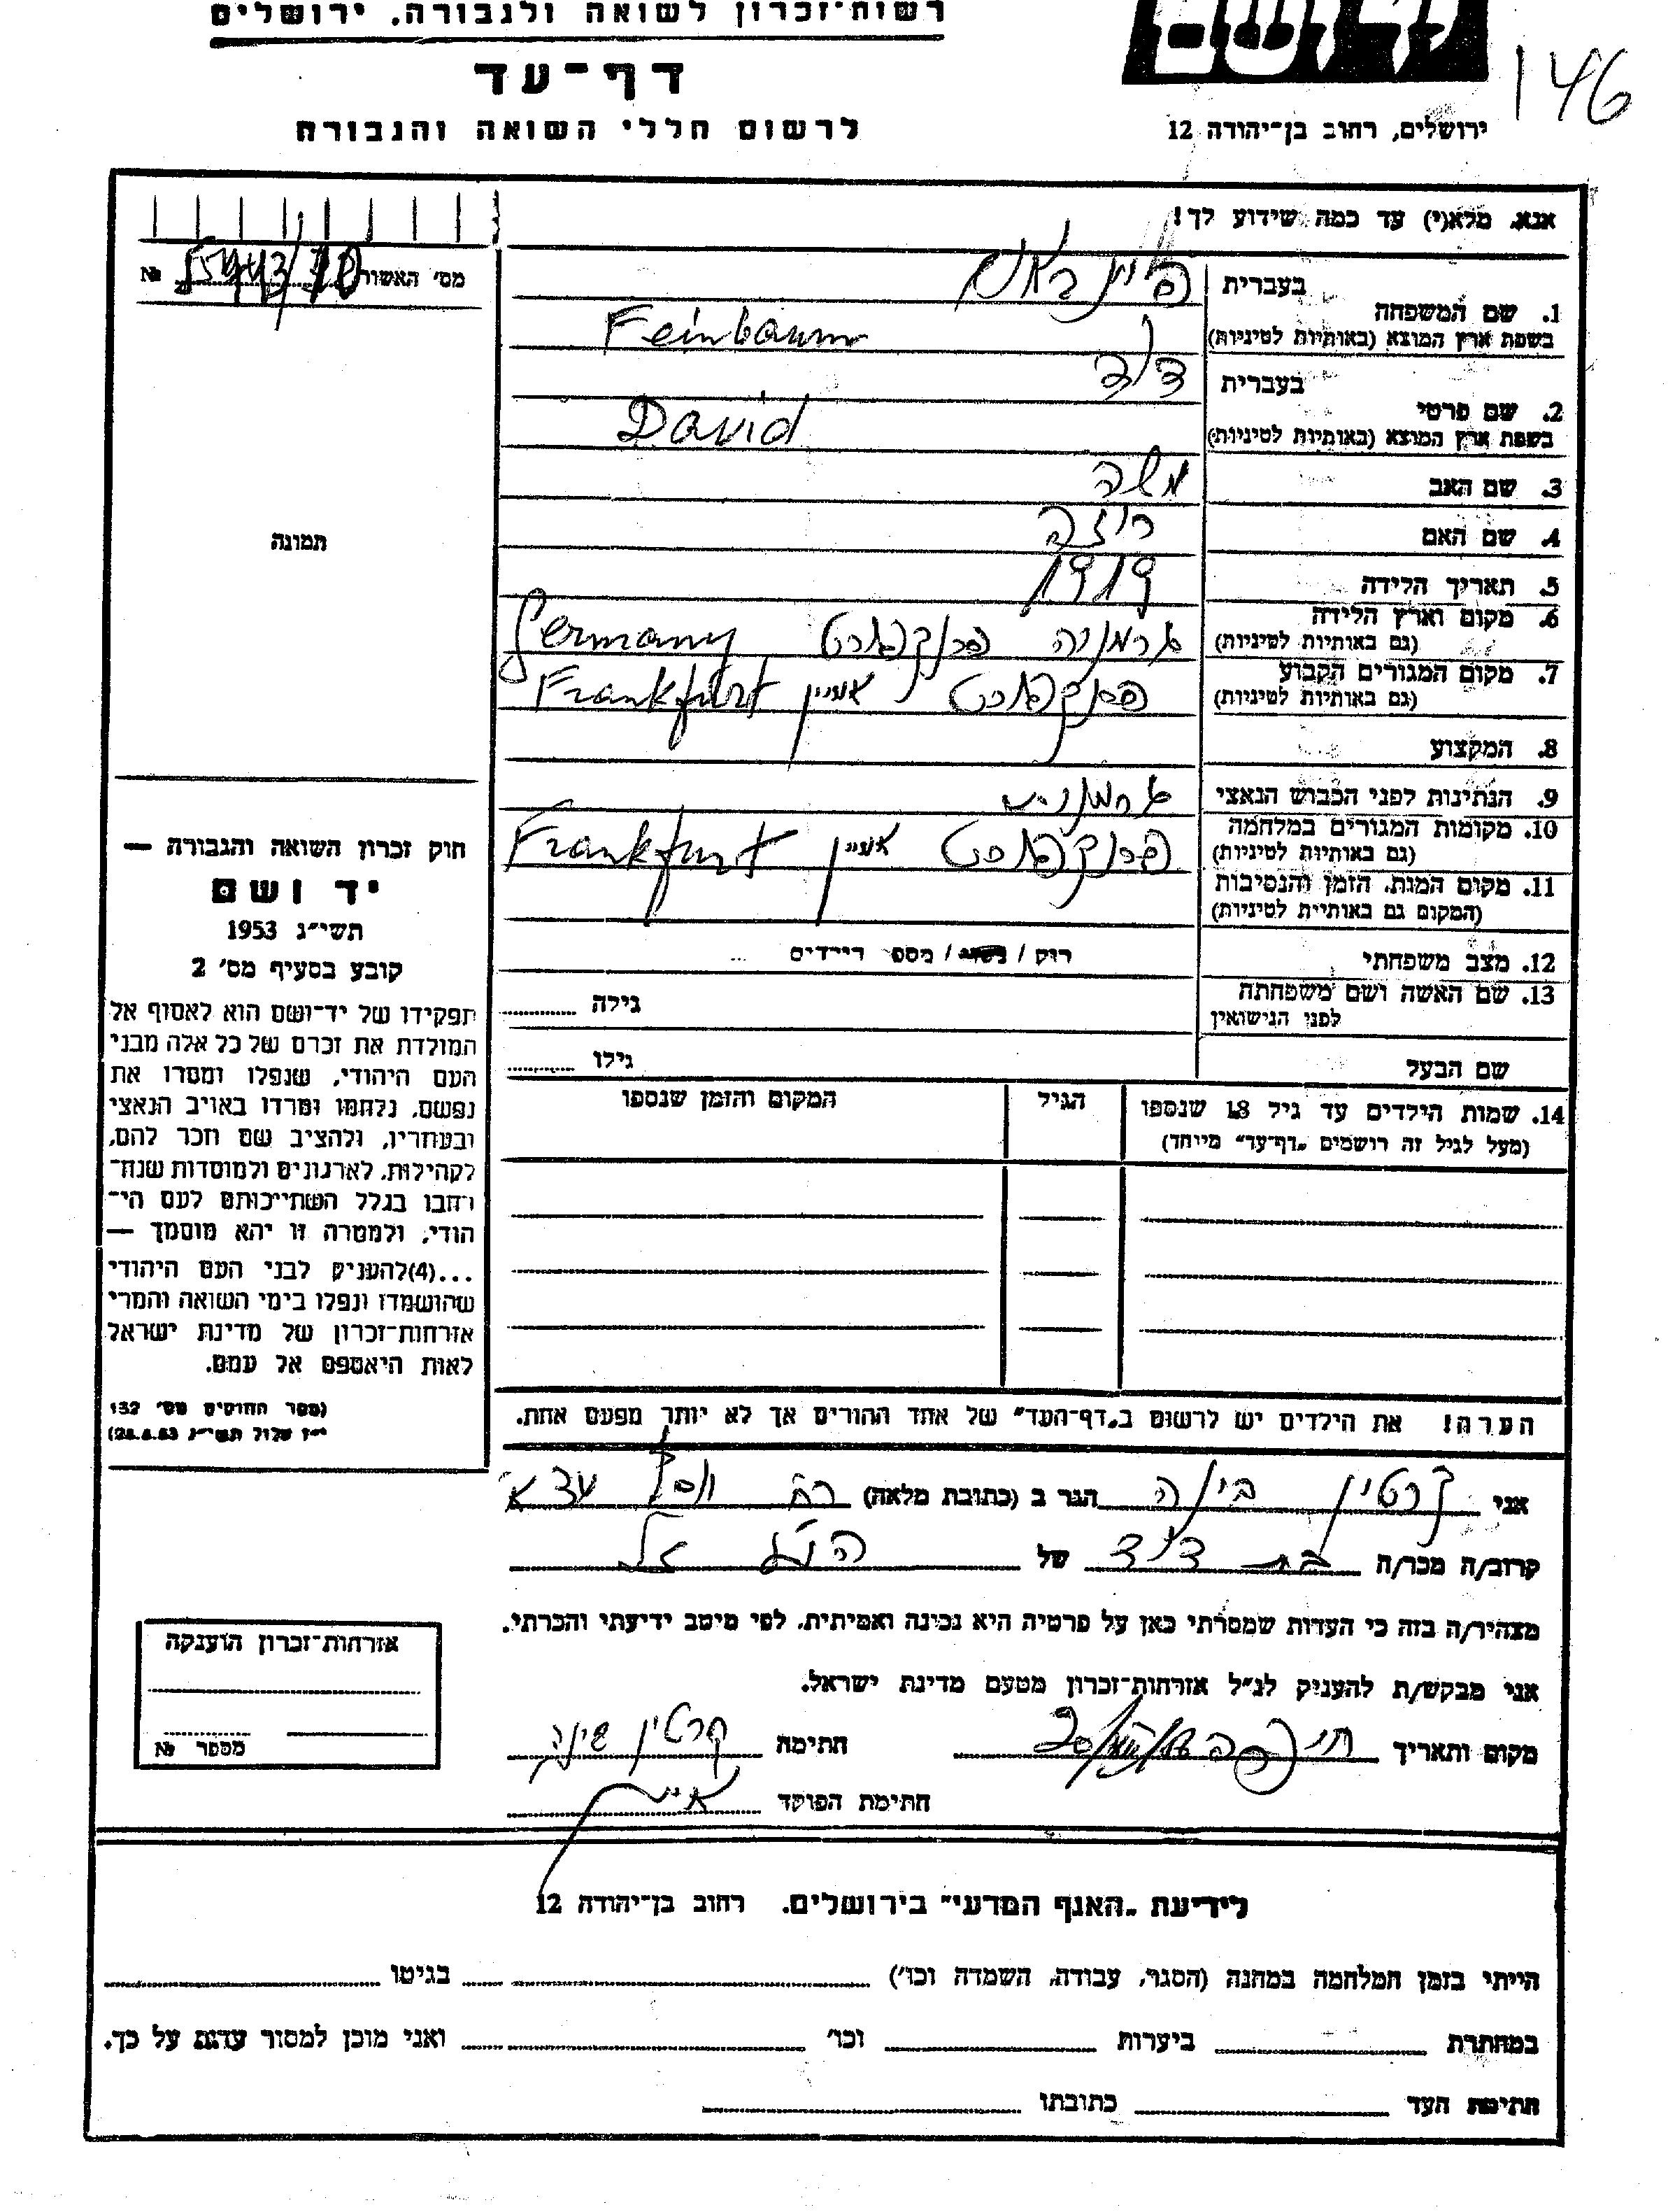 רשות־זכרון לשואה ולגבורה, ירושלים
דף־עד
לרשום חללי השואה והגבורה
ירושלים, רחוב בן־יהודה 12
146
אנא, מלא(י) עד כמה שידוע לך!
מס' האשור №
1. שם המשפחה
בעברית פיינבאום
בשפת ארץ המוצא (באותיות לטיניות) Feinbaum
2. שם פרטי
בעברית דוד
בשפת ארץ המוצא (באותיות לטיניות) David
3. שם האב משה
4. שם האם רוזה
5. תאריך הלידה 1919
6. מקום וארץ הלידה גרמניה פרנקפורט Germany
(גם באותיות לטיניות)
7. מקום המגורים הקבוע פרנקפורט מיין Frankfurt
(גם באותיות לטיניות)
8. המקצוע
9. הנתינות לפני הכבוש הנאצי גרמנית
10. מקומות המגורים במלחמה פרנקפורט מיין Frankfurt
(גם באותיות לטיניות)
11. מקום המות, הזמן והנסיבות
(המקום גם באותיות לטיניות)
12. מצב משפחתי רוק / נשוי / מספר הילדים
13. שם האשה ושם משפחתה גילה
לפני הנישואין
שם הבעל גילו
14. שמות הילדים עד גיל 18 שנספו הגיל המקום והזמן שנספו
(מעל לגיל זה רושמים "דף־עד" מיוחד)
הערה! את הילדים יש לרשום ב"דף־העד" של אחד ההורים אך לא יותר מפעם אחת.
תמונה
חוק זכרון השואה והגבורה —
יד ושם
תשי"ג 1953
קובע בסעיף מס' 2
תפקידו של יד־ושם הוא לאסוף אל
המולדת את זכרם של כל אלה מבני
העם היהודי, שנפלו ומסרו את
נפשם, נלחמו ומרדו באויב הנאצי
ובעוזריו, ולהציב שם וזכר להם,
לקהילות, לארגונים ולמוסדות שנח־
רבו בגלל השתייכותם לעם הי־
הודי, ולמטרה זו יהא מוסמך —
...(4) להעניק לבני העם היהודי
שהושמדו ונפלו בימי השואה והמרי
אזרחות־זכרון של מדינת ישראל
לאות היאספם אל עמם.
(ספר החוקים מס' 132
י"ז אלול תשי"ג 28.8.53)
אני קרטין בינה הגר ב (כתובת מלאה) רח
קרוב/ה מכר/ה בת דוד של
מצהיר/ה בזה כי העדות שמסרתי כאן על פרטיה היא נכונה ואמיתית, לפי מיטב ידיעתי והכרתי.
אני מבקש/ת להעניק לנ"ל אזרחות־זכרון מטעם מדינת ישראל.
מקום ותאריך חיפה חתימה קרטין בינה
חתימת הפוקד
אזרחות־זכרון הוענקה
מספר №
לידיעת "האגף המדעי" בירושלים. רחוב בן־יהודה 12
הייתי בזמן המלחמה במחנה (הסגר, עבודה, השמדה וכו') בגיטו
במחתרת ביערות וכו' ואני מוכן למסור עדות על כך.
חתימת העד כתובתו